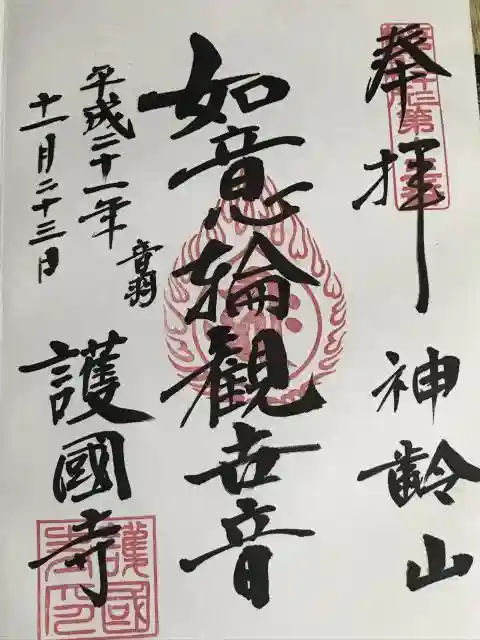 奉拝
神齢山
如意輪観世音
平成二十一年
十一月二十三日
音羽
護國寺